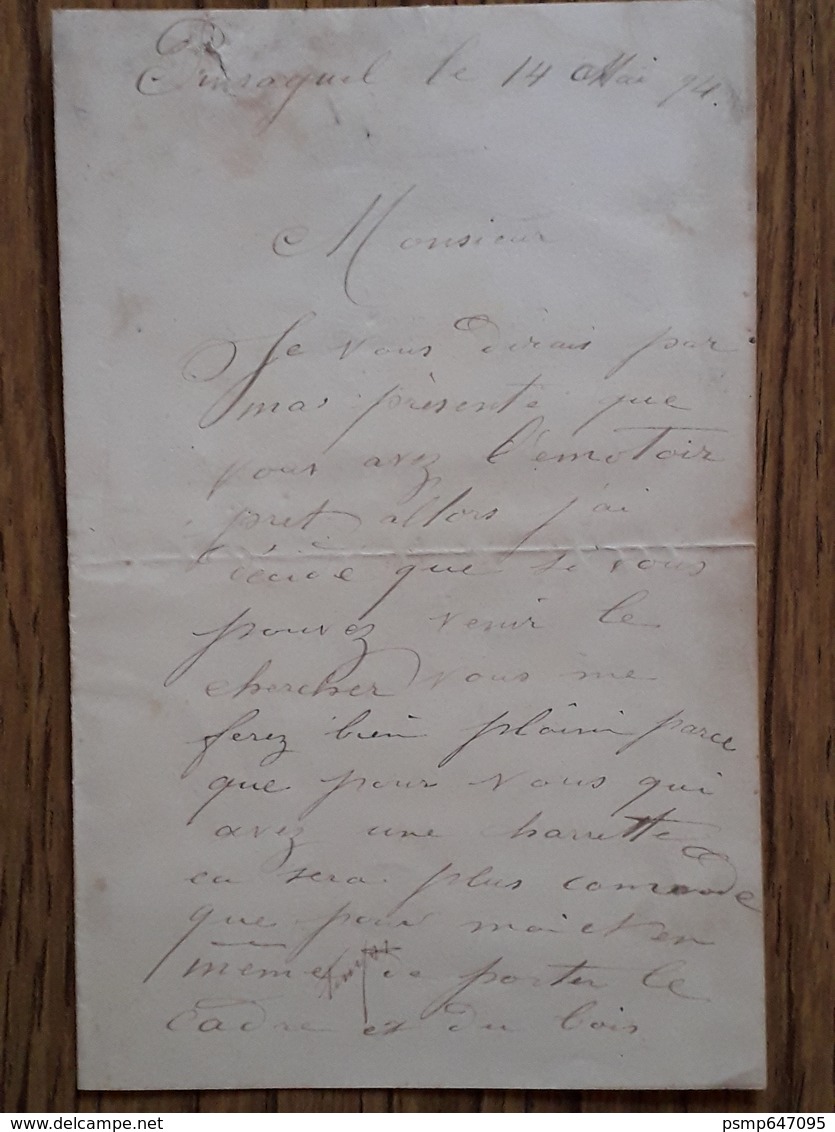 Pinsaguel le 14 Mai 94.
Monsieur
Je vous dirais par
mas présente que
vous avez l'émotoir
pret allors j'ai
décidé que si vous
pouvez venir le
chercher vous me
ferez bien plaisir parce
que pour vous qui
avez une charrette
ca sera plus comode
que pour moi et en
même temps de porter le
Cadre et du bois
delcampe.net
psmp647095